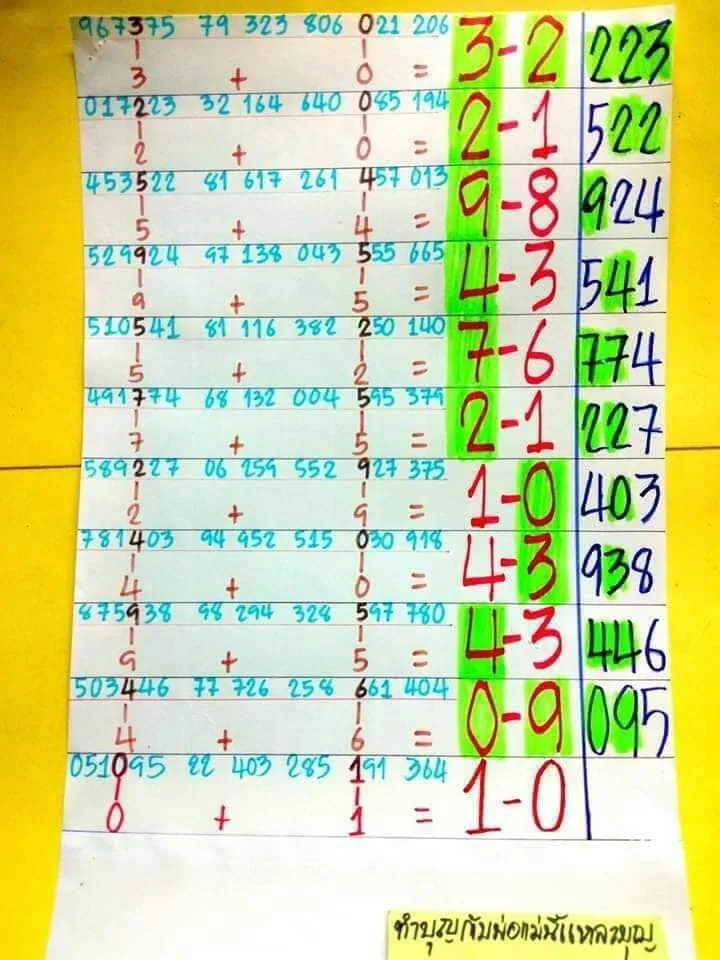 967375 79 323 806 021 206
3 + 0 = 3-2 223
017223 32 164 640 085 194
2 + 0 = 2-1 522
453522 81 617 261 457 013
5 + 4 = 9-8 924
529924 97 138 043 555 665
9 + 5 = 4-3 541
510541 81 116 382 250 140
5 + 2 = 7-6 774
491774 68 132 004 595 379
7 + 5 = 2-1 227
589227 06 259 552 927 375
2 + 9 = 1-0 403
781403 94 952 515 030 918
4 + 0 = 4-3 938
875938 98 294 328 597 780
9 + 5 = 4-3 446
503446 77 726 258 661 404
4 + 6 = 0-9 095
051095 22 403 285 191 364
0 + 1 = 1-0
ทำบุญกับพ่อแม่นี้แหละบุญ